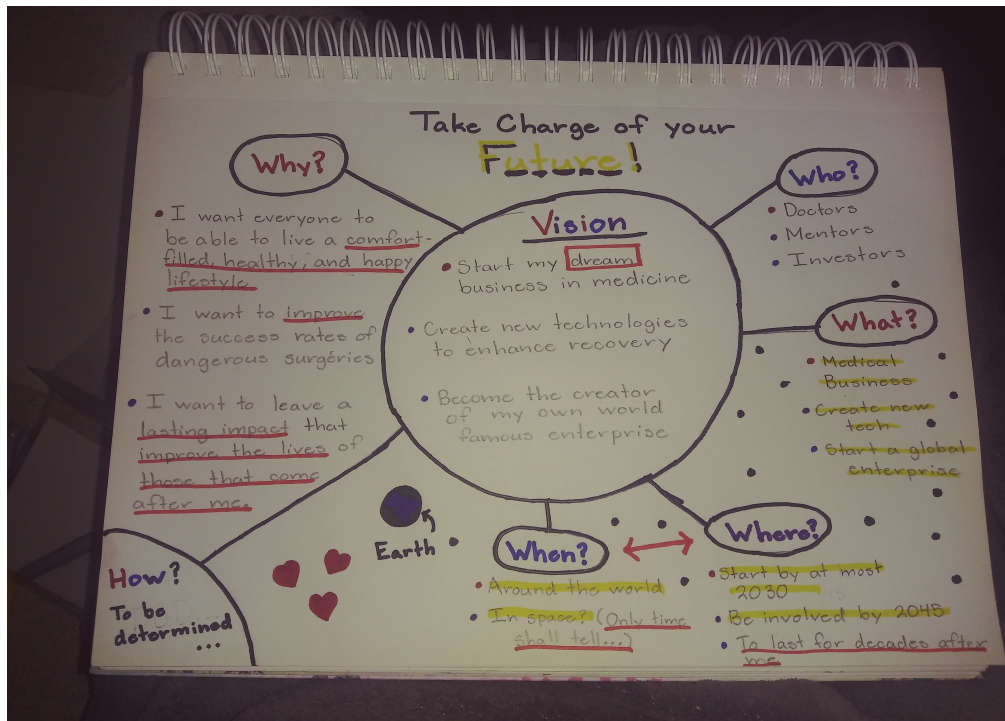 Take Charge of your
Future!
Why?
• I want everyone to
be able to live a comfort-
filled, healthy, and happy
lifestyle
• I want to improve
the success rates of
dangerous surgeries
• I want to leave a
lasting impact that
improve the lives of
those that come
after me.
Vision
• Start my dream
business in medicine
• Create new technologies
to enhance recovery
• Become the creator
of my own world
famous enterprise
Who?
• Doctors
• Mentors
• Investors
What?
• Medical
Business
• Create new
tech
• Start a global
enterprise
How?
To be
determined
...
Earth
When?
• Around the world
• In space? (Only time
shall tell...)
Where?
• Start by at most
2030
• Be involved by 2045
• To last for decades after
me